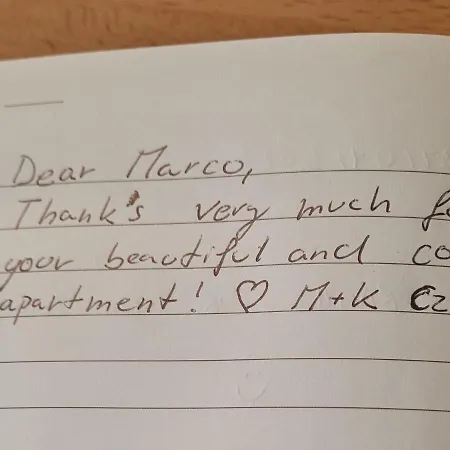 Dear Marco,
Thank's very much
your beautiful and
apartment! ♡ M+K CZ